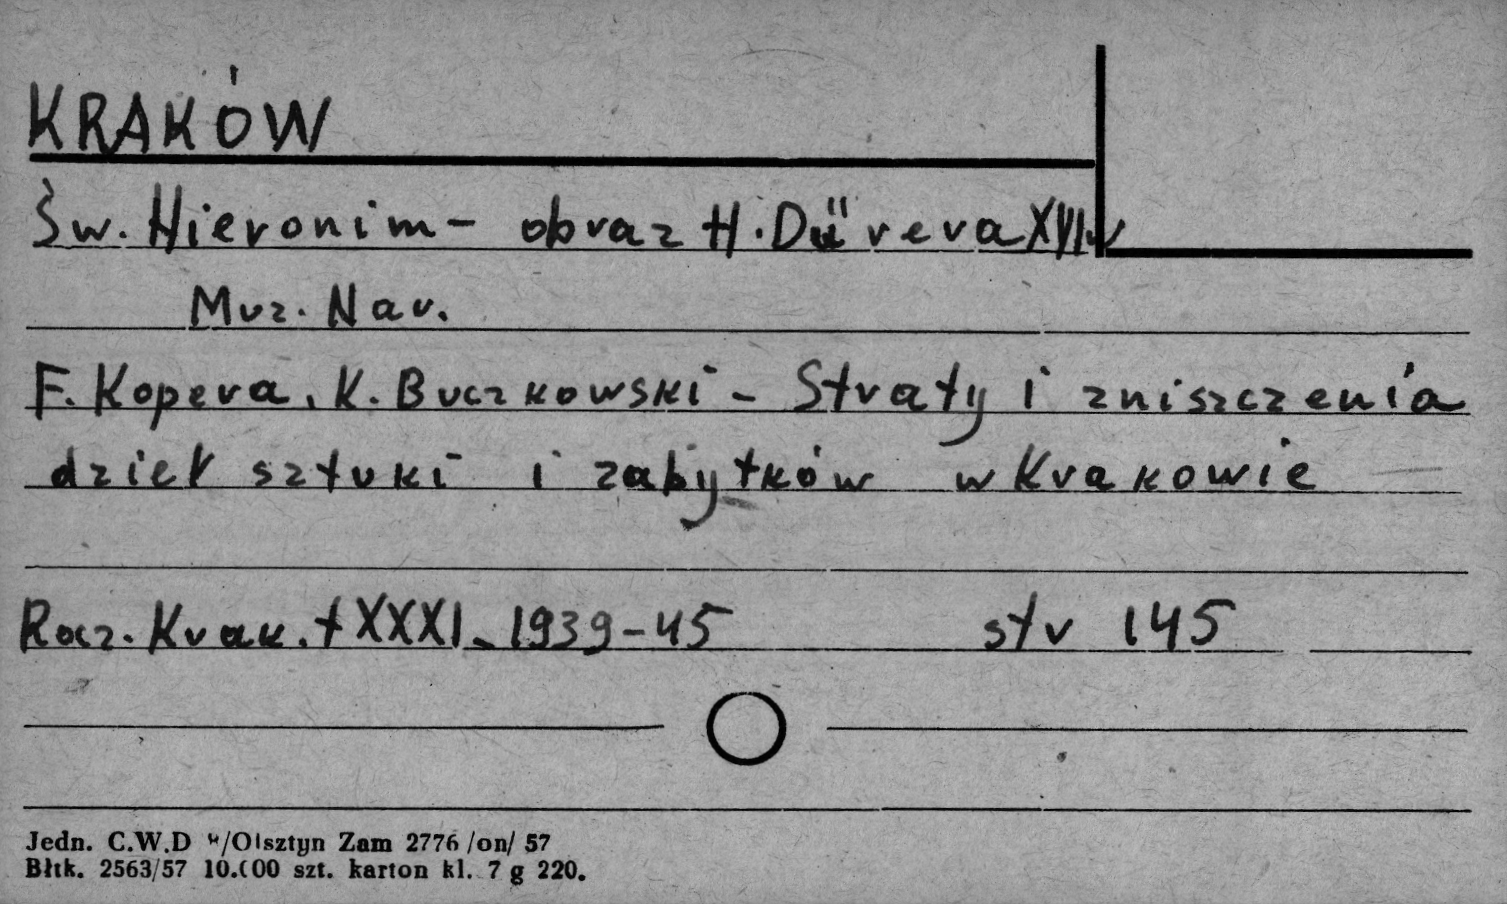 KRAKÓW
Św. Hieronim - obraz H. Dürera XVI w
Muz. Nar.
F. Kopera, K. Buczkowski - Straty i zniszczenia
dzieł sztuki i zabytków w Krakowie
Rocz. Krak. t XXXI - 1939-45 str 145
Jedn. C.W.D w/Olsztyn Zam 2776 /on/ 57
Błtk. 2563/57 10.000 szt. karton kl. 7 g 220.